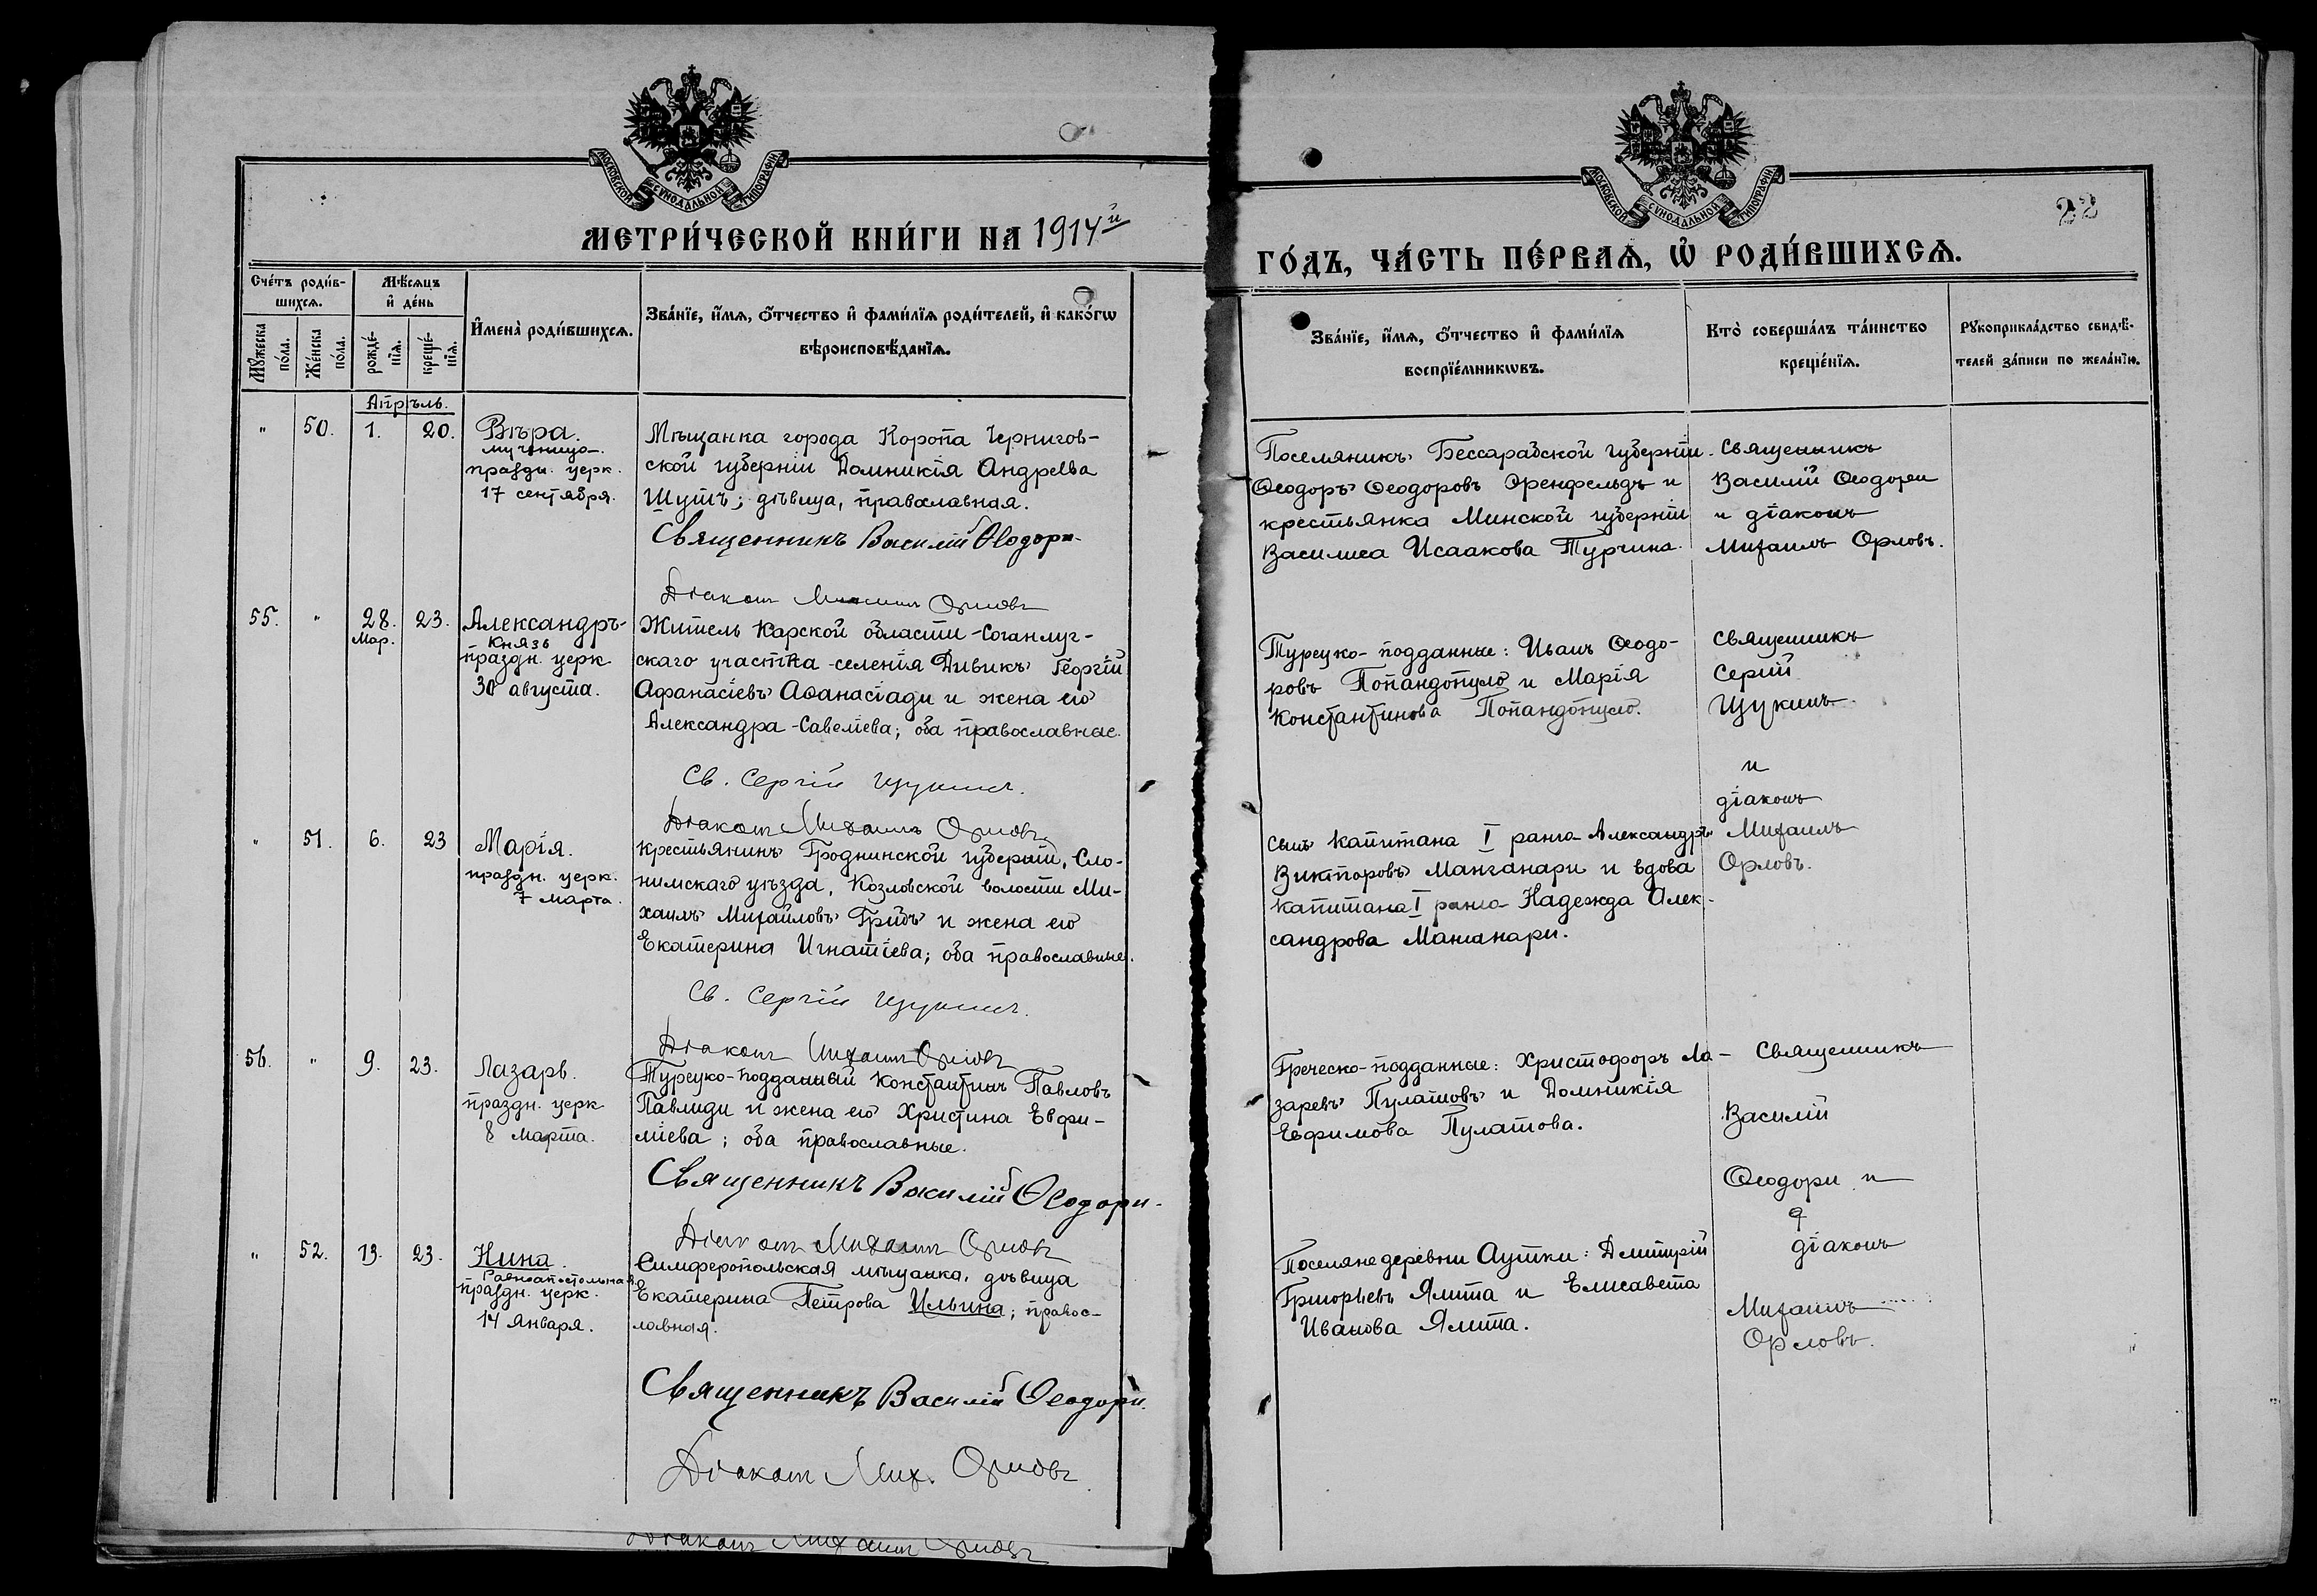 МОСКОВСКОЙ СѴНОДАЛЬНОЙ ТИПОГРАФІИ
МЕТРИ́ЧЕСКОЙ КНИ́ГИ НА 1914й
Сче́тъ роди́в-
шихсѧ.
Мѣ́сѧцъ
и҆ де́нь
И҆мена̀ роди́вшихсѧ.
Зва́нїе, и҆́мѧ, ѻ҆́тчество и҆ фами́лїѧ роди́телей, и҆ како́гѡ
вѣроисповѣ́данїѧ.
Мꙋ́жеска
по́ла.
Же́нска
по́ла.
рожде́-
нїѧ.
креще́-
нїѧ.
Апрѣль.
" 50. 1. 20. Вѣра.
мученица.
праздн. церк.
17 сентября.
Мѣщанка города Коропа Чернигов-
ской губерніи Домникія Андреева
Шутъ; дѣвица, православная.
Священникъ Василій Ѳеодори.
Діаконъ Михаилъ Орловъ
55. " 28. 23. Александръ
Мар.
Князь
праздн. церк.
30 августа.
Житель Карской области Соганлуг-
скаго участка селенія Дивикъ Георгій
Афанасіевъ Аѳанасіади и жена его
Александра Савеліева; оба православные.
Св. Сергій Щукинъ.
Діаконъ Михаилъ Орловъ
" 51. 6. 23 Марія.
праздн. церк.
7 марта.
Крестьянинъ Гродненской губерніи, Сло-
нимскаго уѣзда, Козловской волости Ми-
хаилъ Михайловъ Гридъ и жена его
Екатерина Игнатіева; оба православные.
Св. Сергій Щукинъ.
Діаконъ Михаилъ Орловъ
56. " 9. 23. Лазарь.
праздн. церк.
8 марта.
Турецко-подданный Константинъ Павловъ
Павлиди и жена его Христина Евфи-
міева; оба православные.
Священникъ Василій Ѳеодори.
Діаконъ Михаилъ Орловъ
" 52. 13. 23. Нина.
Равноапостольная.
праздн. церк.
14 января.
Симферопольская мѣщанка, дѣвица
Екатерина Петрова Ильина; правос-
лавная.
Священникъ Василій Ѳеодори.
Діаконъ Мих. Орловъ
Діаконъ Михаилъ Орловъ
МОСКОВСКОЙ СѴНОДАЛЬНОЙ ТИПОГРАФІИ
22
ГО́ДЪ, ЧА́СТЬ ПЕ́РВАѦ, Ѡ҆ РОДИ́ВШИХСѦ.
Зва́нїе, и҆́мѧ, ѻ҆́тчество и҆ фами́лїѧ
воспрїе́мникѡвъ.
Кто̀ соверша́лъ та́инство
креще́нїѧ.
Рꙋкоприкла́дство свидѣ́-
телей за́писи по жела́нїю.
Поселянинъ Бессарабской губерніи
Ѳеодоръ Ѳеодоровъ Эренфельдъ и
крестьянка Минской губерніи
Василиса Исаакова Турчина.
Священникъ
Василій Ѳеодори
и діаконъ
Михаилъ Орловъ.
Турецко-подданные: Иванъ Ѳеодо-
ровъ Попандопуло и Марія
Константинова Попандопуло.
Священникъ
Сергій
Щукинъ
и
діаконъ
Михаилъ
Орловъ.
Сынъ капитана I ранга Александръ
Викторовъ Манганари и вдова
капитана I ранга Надежда Алек-
сандрова Манганари.
Греческо-подданные: Христофоръ Ла-
заревъ Пулатовъ и Домникія
Евфимова Пулатова.
Священникъ
Василій
Ѳеодори и
діаконъ
Михаилъ
Орловъ.
Поселяне деревни Аутки: Дмитрій
Григорьевъ Ялита и Елисавета
Иванова Ялита.